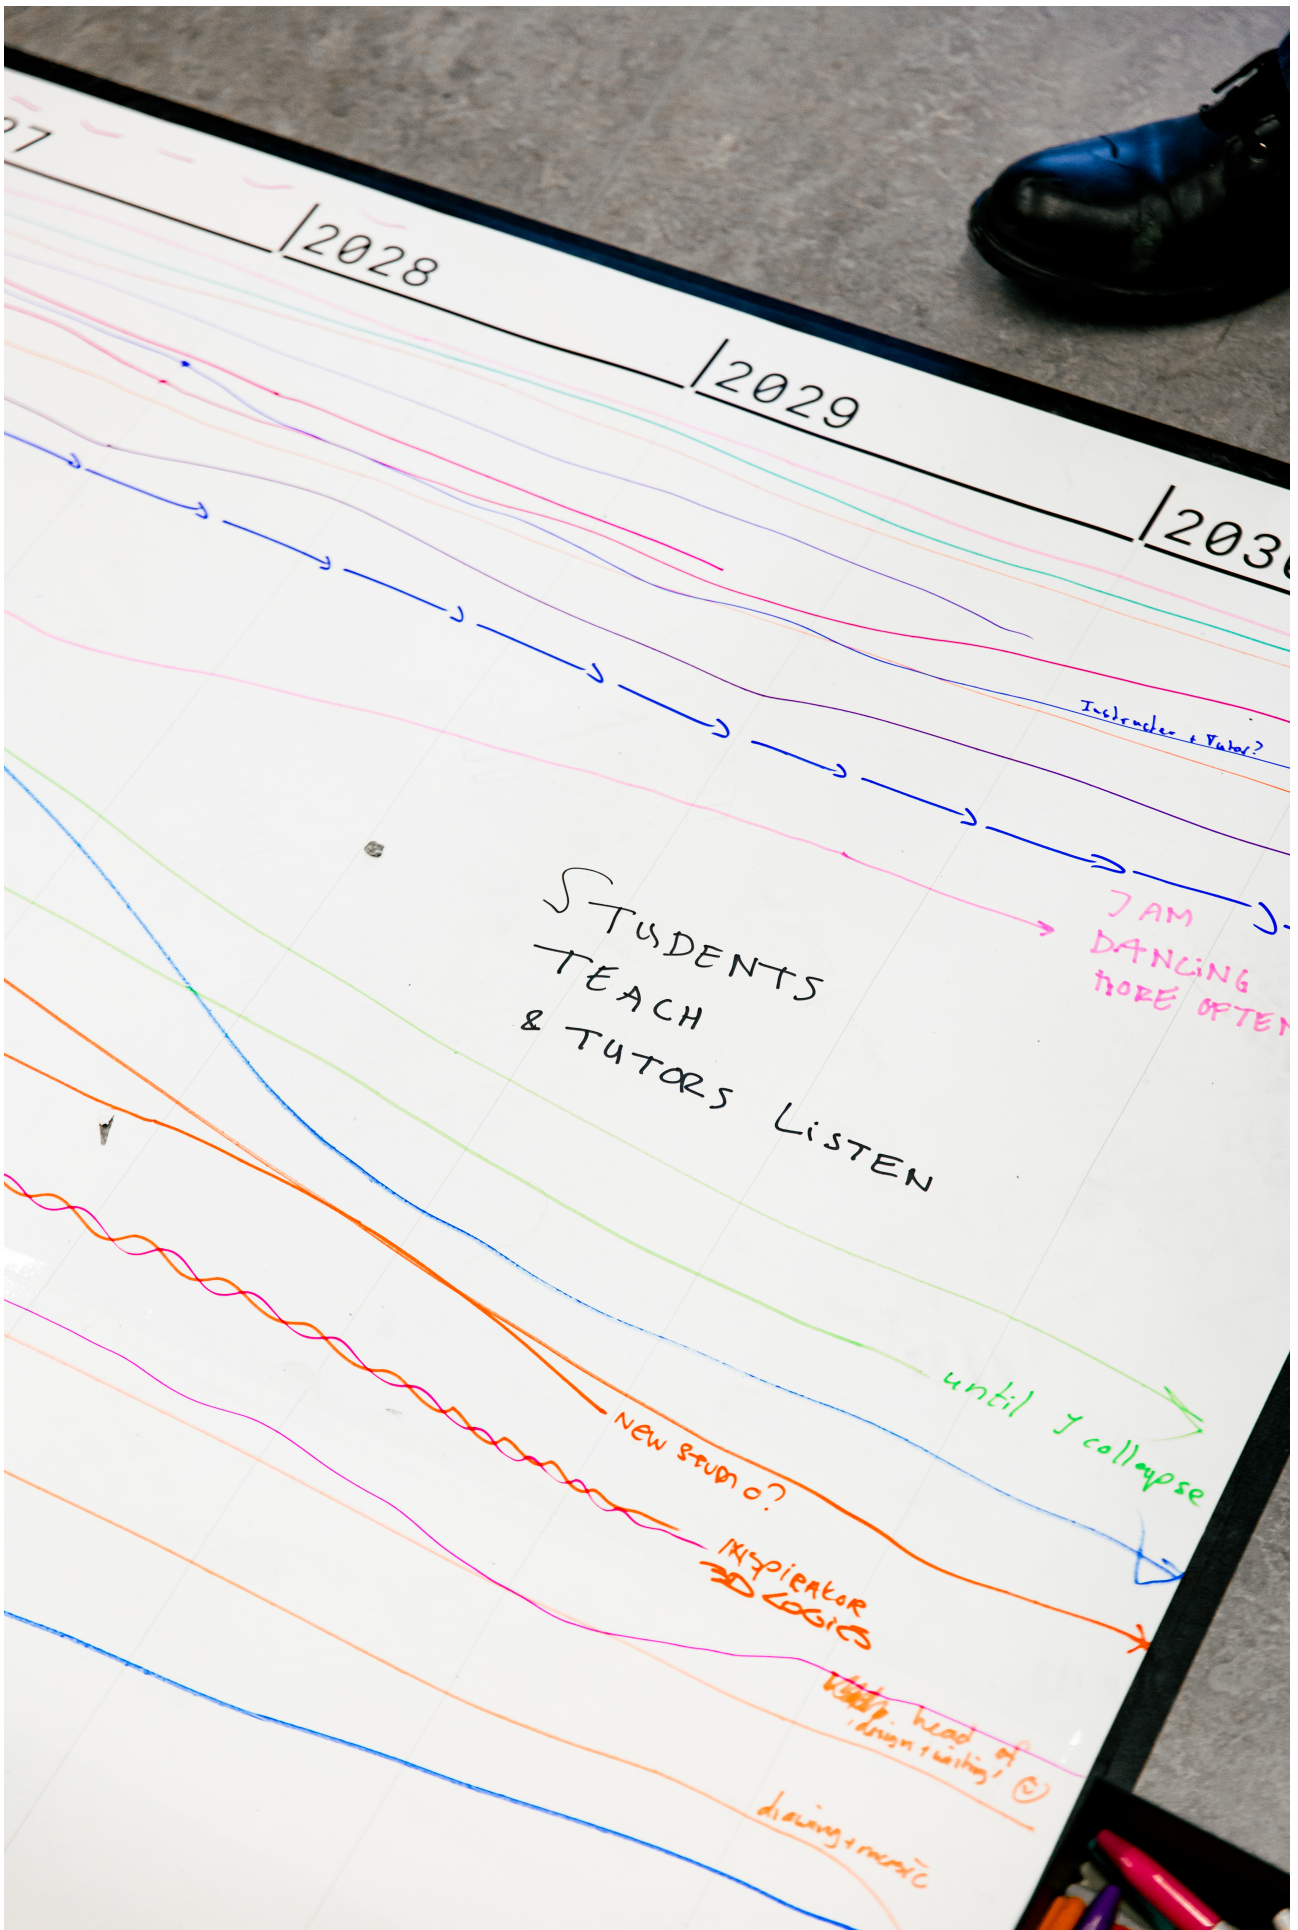 27
2028
2029
2030
Instructor + Tutor?
I AM
DANCING
MORE OFTEN
STUDENTS
TEACH
& TUTORS LISTEN
until I collapse
NEW STUDIO?
INSPIRATOR
3D LOGICS
head of
'design + writing'
drawing + music